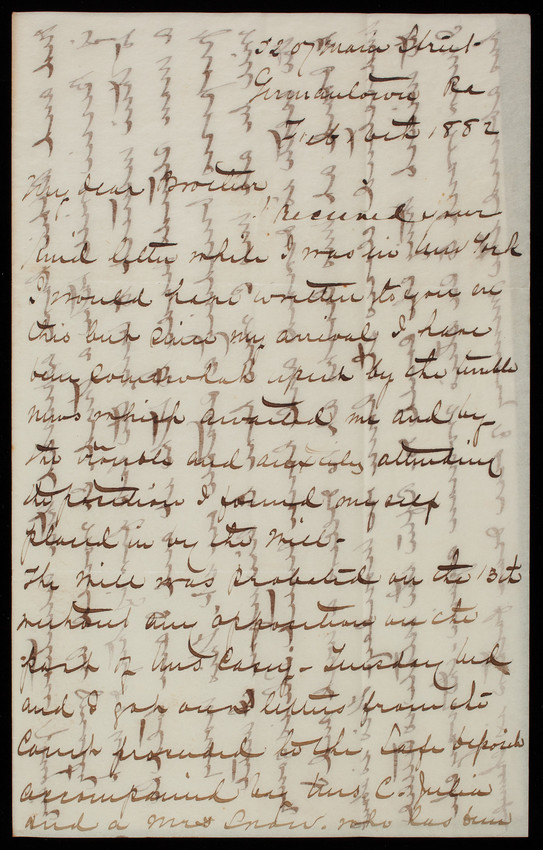 5207 Main Street
Germantown Pa
Feb 1882
My dear Brother
I received your
kind letter while I was in New York
I would have written to you ere
this but since my arrival I have
been somewhat upset by the terrible
news which awaited me and by
the trouble and anxiety attending
the position I found myself
placed in by the Will-
The Will was probated on the 13th
without any opposition on the
part of Mrs Casey- Tuesday
and I got our letters from the
Court proceeded to the Safe deposit
accompanied by Mrs C. Julia
and a Mrs Snow. who has been